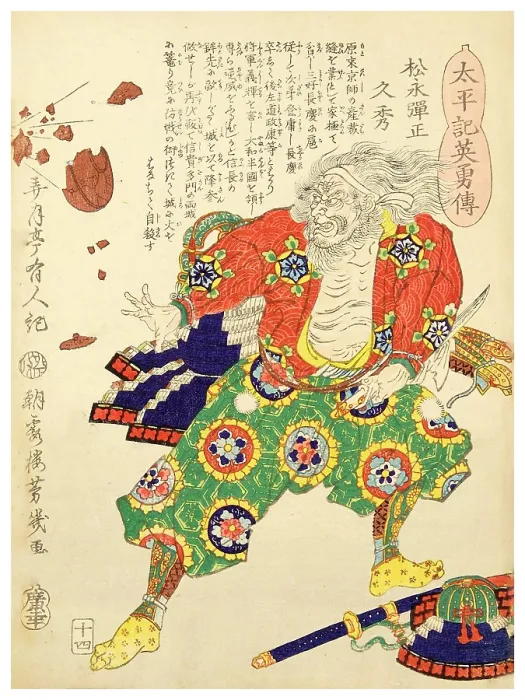 太平記英勇傳
松永彈正
久秀
原来京師の産裁
縫を業として家極て
貧し三好長慶が扈
従して次手登庸し長慶
卒去して後左道政康等とはかり
将軍義輝を害し大和半國を領
専ら逆威をふるひしが信長の
鋒先に敵しがたく城を以て降参
做せしが再び叛て信貴多門の両城
に籠り竟に防戦の術尽き城に火を
はなちて自殺す
弄月亭有人記
朝霞楼芳幾画
十四